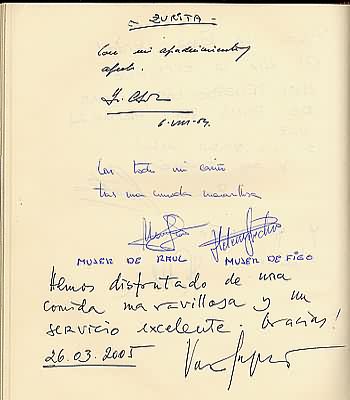 - ZURITA -
Con mi agradecimiento y
afecto.
6-VIII-04.
Con todo mi cariño
tras una comida maravillosa
MUJER DE RAUL MUJER DE FIGO
Hemos disfrutado de una
comida maravillosa y un
servicio excelente. Gracias!
26.03.2005